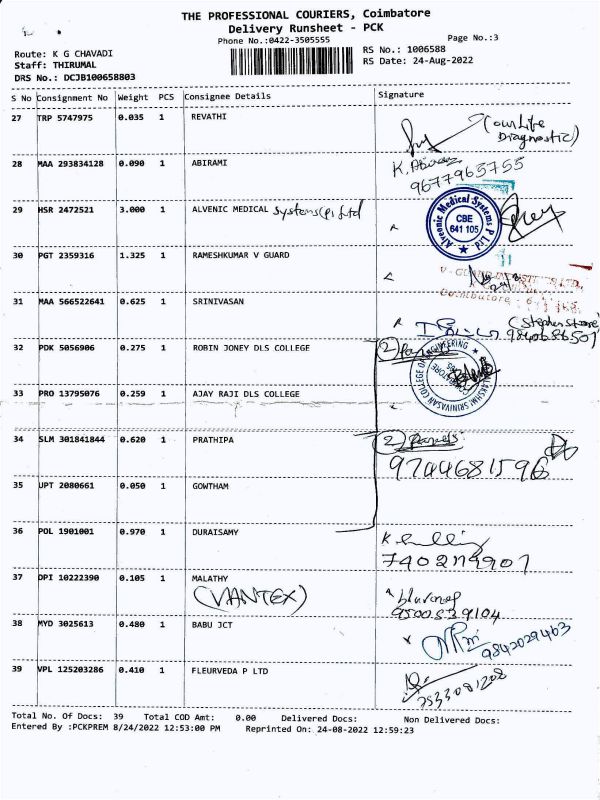 THE PROFESSIONAL COURIERS, Coimbatore
Delivery Runsheet - PCK
Phone No.:0422-3505555
Page No.:3
Route: K G CHAVADI
RS No.: 1006588
Staff: THIRUMAL
RS Date: 24-Aug-2022
DRS No.: DCJB100658803
S No Consignment No Weight PCS Consignee Details Signature
27 TRP 5747975 0.035 1 REVATHI
(OurLife Diagnostic)
28 MAA 293834128 0.090 1 ABIRAMI
9677965755
29 HSR 2472521 3.000 1 ALVENIC MEDICAL Systems (P) Ltd
Alvenic Medical Systems P Ltd
CBE
641 105
30 PGT 2359316 1.325 1 RAMESHKUMAR V GUARD
Coimbatore
31 MAA 566522641 0.625 1 SRINIVASAN
32 PDK 5056906 0.275 1 ROBIN JONEY DLS COLLEGE
2
COLLEGE OF ENGINEERING
SRINIVASAN
33 PRO 13795076 0.259 1 AJAY RAJI DLS COLLEGE
34 SLM 301841844 0.620 1 PRATHIPA
2
35 UPT 2080661 0.050 1 GOWTHAM
36 POL 1901001 0.970 1 DURAISAMY
37 DPI 10222390 0.105 1 MALATHY
(VANTEX)
9500539104
38 MYD 3025613 0.480 1 BABU JCT
9842029463
39 VPL 125203286 0.410 1 FLEURVEDA P LTD
Total No. Of Docs: 39 Total COD Amt: 0.00 Delivered Docs: Non Delivered Docs:
Entered By :PCKPREM 8/24/2022 12:53:00 PM Reprinted On: 24-08-2022 12:59:23